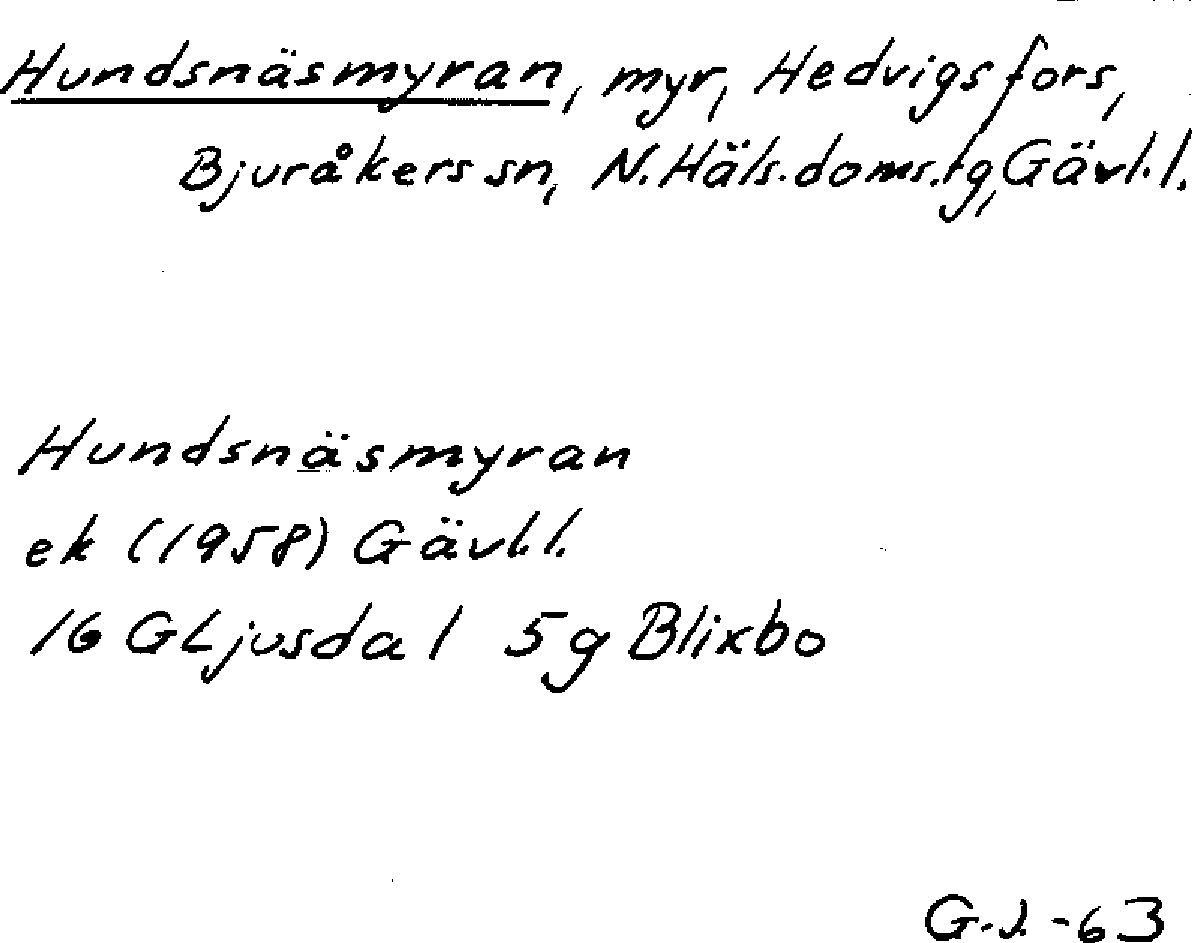 Hundsnäsmyran, myr, Hedvigsfors,
Bjuråkers sn, N. Häls. doms. tg, Gävl. l.
Hundsnäsmyran
ek (1958) Gävl. l.
16 G Ljusdal 5g Blixbo
G.J. -63